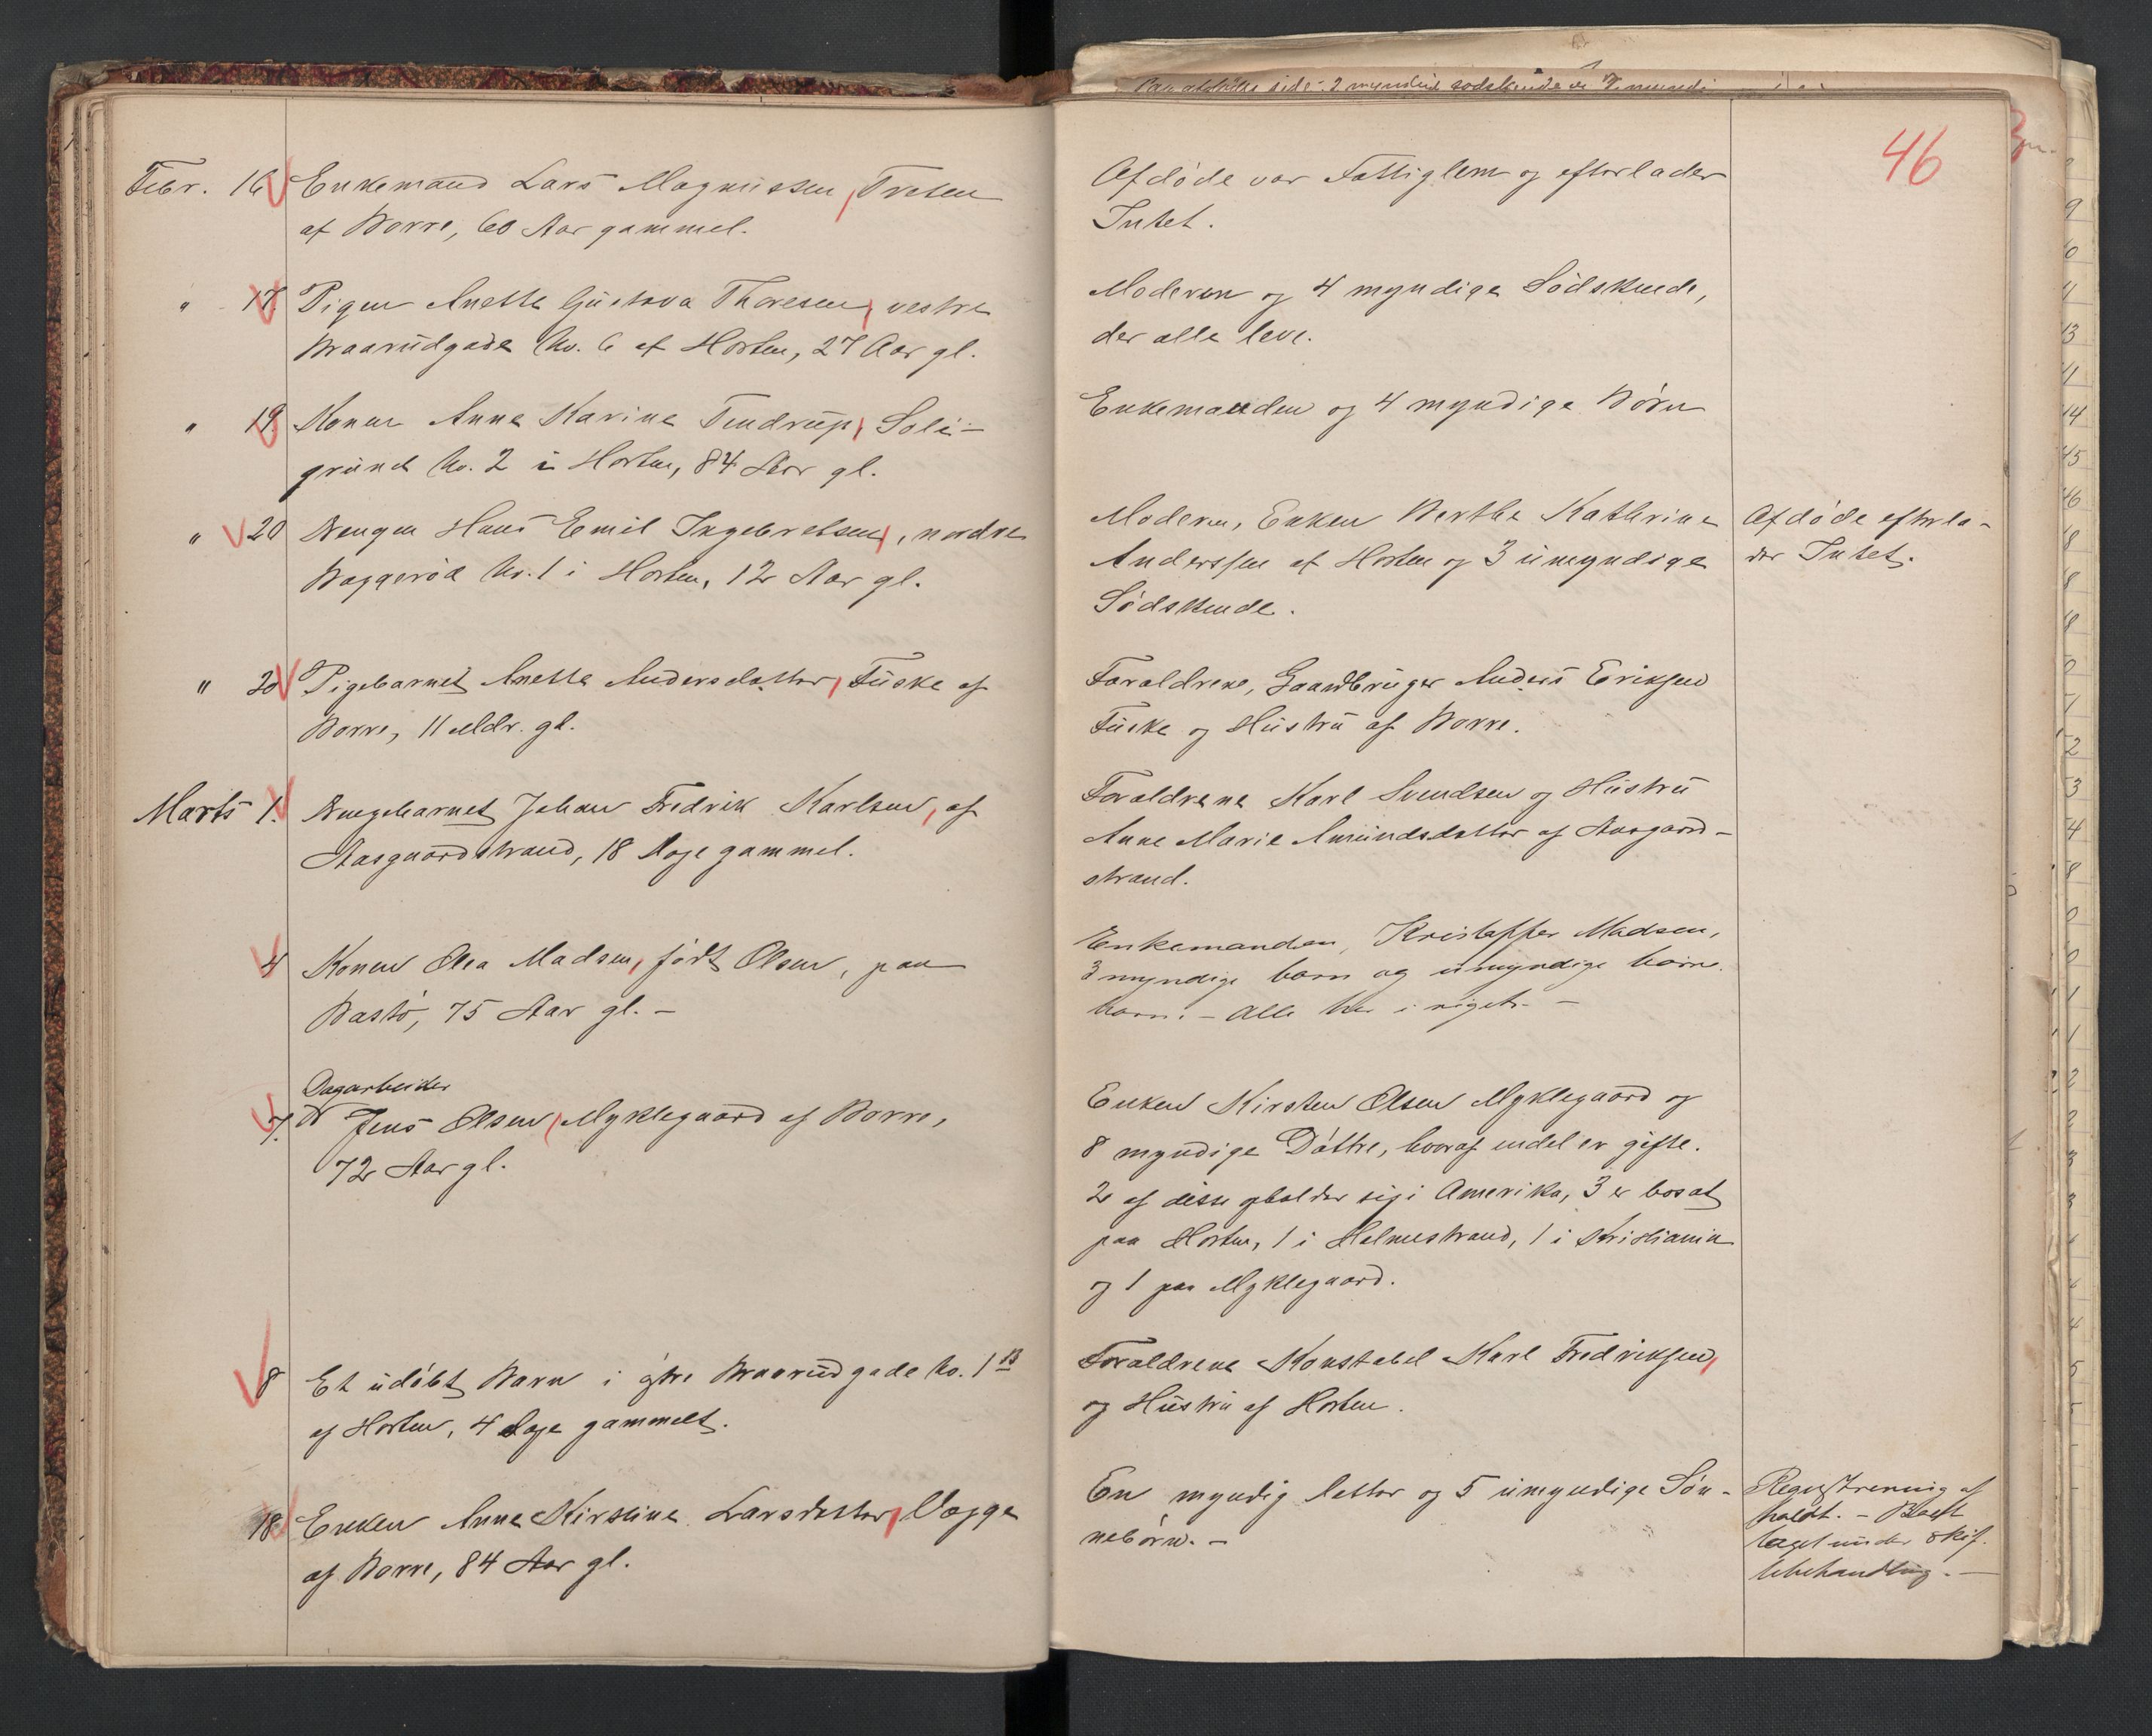 46
Febr. 16 Enkemand Lars Magnussen, Tveten
af Borre, 60 Aar gammel.
Afdøde var Fattiglem og efterlader
Intet.
" 17. Pigen Anette Gustava Thoresen, vestre
Braarudgade No. 6 af Horten, 27 Aar gl.
Moderen og 4 myndige Sødskende,
der alle leve.
" 19. Konen Anne Karine Tendrup, Soli-
grund No. 2 i Horten, 84 Aar gl.
Enkemanden og 4 myndige Børn
" 20 Drengen Hans Emil Ingebretsen, nordre
Baggerød No. 1 i Horten, 12 Aar gl.
Moderen, Enken Berthe Kathrine
Anderssen af Horten og 3 umyndige
Sødskende.
Afdøde efterla-
der Intet.
" 20 Pigebarnet Anette Andersdatter, Fuske af
Borre, 11 Mdr. gl.
Forældrene, Gaardbruger Anders Eriksen
Fuske og Hustru af Borre.
Marts 1. Drengebarnet Johan Fredrik Karlsen, af
Aasgaardstrand, 18 Dage gammel.
Forældrene Karl Svendsen og Hustru
Anne Marie Amundsdatter af Aasgaard-
strand.
4 Konen Olea Madsen, født Olsen, paa
Bastø, 75 Aar gl. -
Enkemanden, Kristoffer Madsen,
3 myndige børn og umyndige børne-
børn. - Alle her i riget. -
Dagarbeider
7. Jens Olsen, Myklegaard af Borre,
72 Aar gl.
Enken Kirsten Olsen Myklegaard og
8 myndige Døttre, hvoraf endel er gifte.
2 af disse opholder sig i Amerika, 3 er bosat
paa Horten, 1 i Holmestrand, 1 i Kristiania
og 1 paa Myklegaard.
8 Et udøbt Barn i østre Braarudgade No. 1 B
af Horten, 4 Dage gammelt.
Forældrene Konstabel Karl Fredriksen,
og Hustru af Horten.
18. Enken Anne Kirstine Larsdatter, Vegge
af Borre, 84 Aar gl.
En myndig Datter og 5 umyndige Søn-
nebørn. -
Registrering af
holdt. - Boet
taget under skif-
tebehandling. -